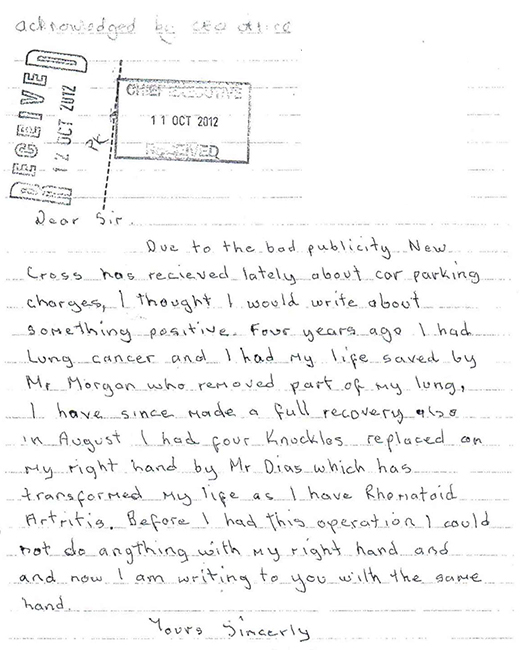 acknowledged by CEO office
RECEIVED
12 OCT 2012
PK
CHIEF EXECUTIVE
11 OCT 2012
RECEIVED
Dear Sir.
Due to the bad publicity New
Cross has recieved lately about car parking
charges, I thought I would write about
something positive. Four years ago I had
Lung cancer and I had my life saved by
Mr Morgan who removed part of my lung,
I have since made a full recovery also
in August I had four Knuckles replaced on
my right hand by Mr Dias which has
transformed my life as I have Rhomatoid
Artritis. Before I had this operation I could
not do anything with my right hand and
and now I am writing to you with the same
hand.
Yours Sincerly